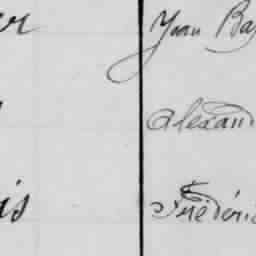 er Yvan Ba
Alexand
is Frédéri